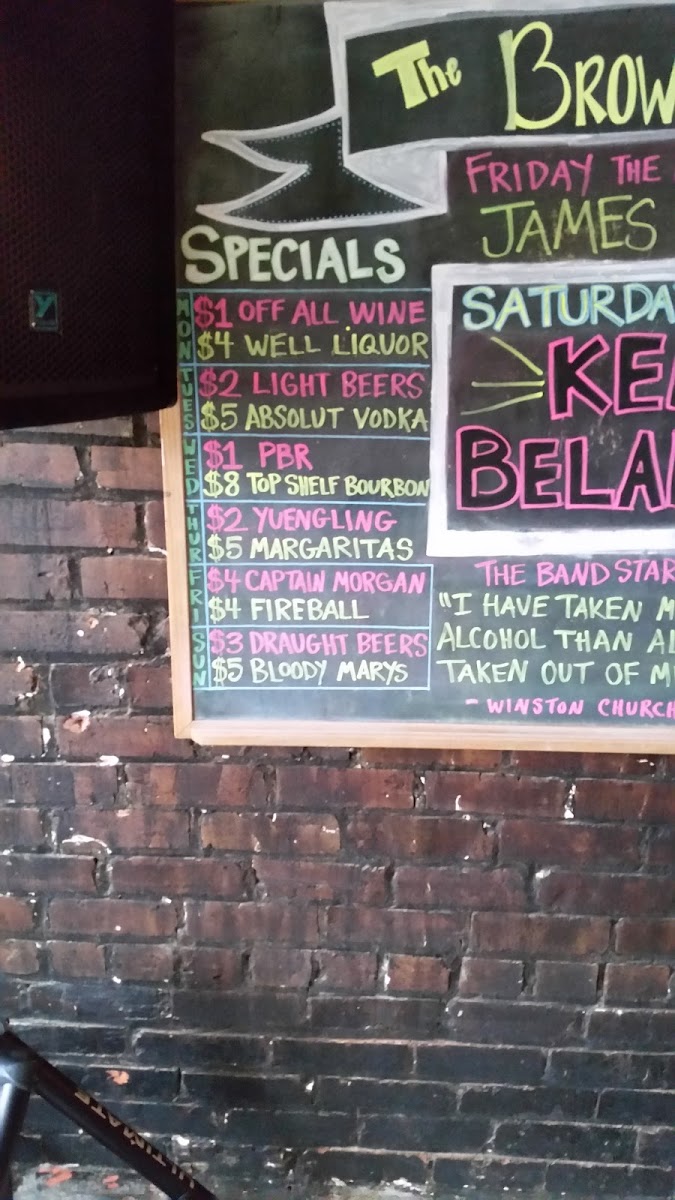 The BROW
FRIDAY THE
JAMES
SPECIALS
MON
$1 OFF ALL WINE
$4 WELL LIQUOR
TUES
$2 LIGHT BEERS
$5 ABSOLUT VODKA
WED
$1 PBR
$8 TOP SHELF BOURBON
THUR
$2 YUENGLING
$5 MARGARITAS
FRI
$4 CAPTAIN MORGAN
$4 FIREBALL
SUN
$3 DRAUGHT BEERS
$5 BLOODY MARYS
SATURDA
KE
BELA
THE BAND STAR
"I HAVE TAKEN M
ALCOHOL THAN AL
TAKEN OUT OF M
- WINSTON CHURCH
ULTIMATE